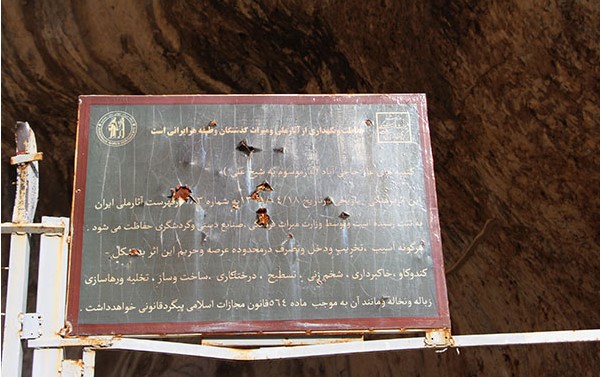 حفاظت ونگهداری از آثارملی ومیراث گذشتگان وظیفه هرایرانی است
کتیبه های غار حاجی آباد موسوم به شیخ علی
این اثر تاریخی درتاریخ ۱۸/ به شماره درفهرست آثارملی ایران
به ثبت رسیده است وتوسط وزارت میراث فرهنگی ، صنایع دستی وگردشگری حفاظت می شود .
هرگونه آسیب ،تخریب ودخل وتصرف درمحدوده عرصه وحریم این اثر به شکل
کندوکاو ،خاکبرداری ، شخم زنی ، تسطیح ، درختکاری ،ساخت وساز ، تخلیه ورهاسازی
زباله ونخاله ومانند آن به موجب ماده ۵۶۴قانون مجازات اسلامی پیگردقانونی خواهدداشت .